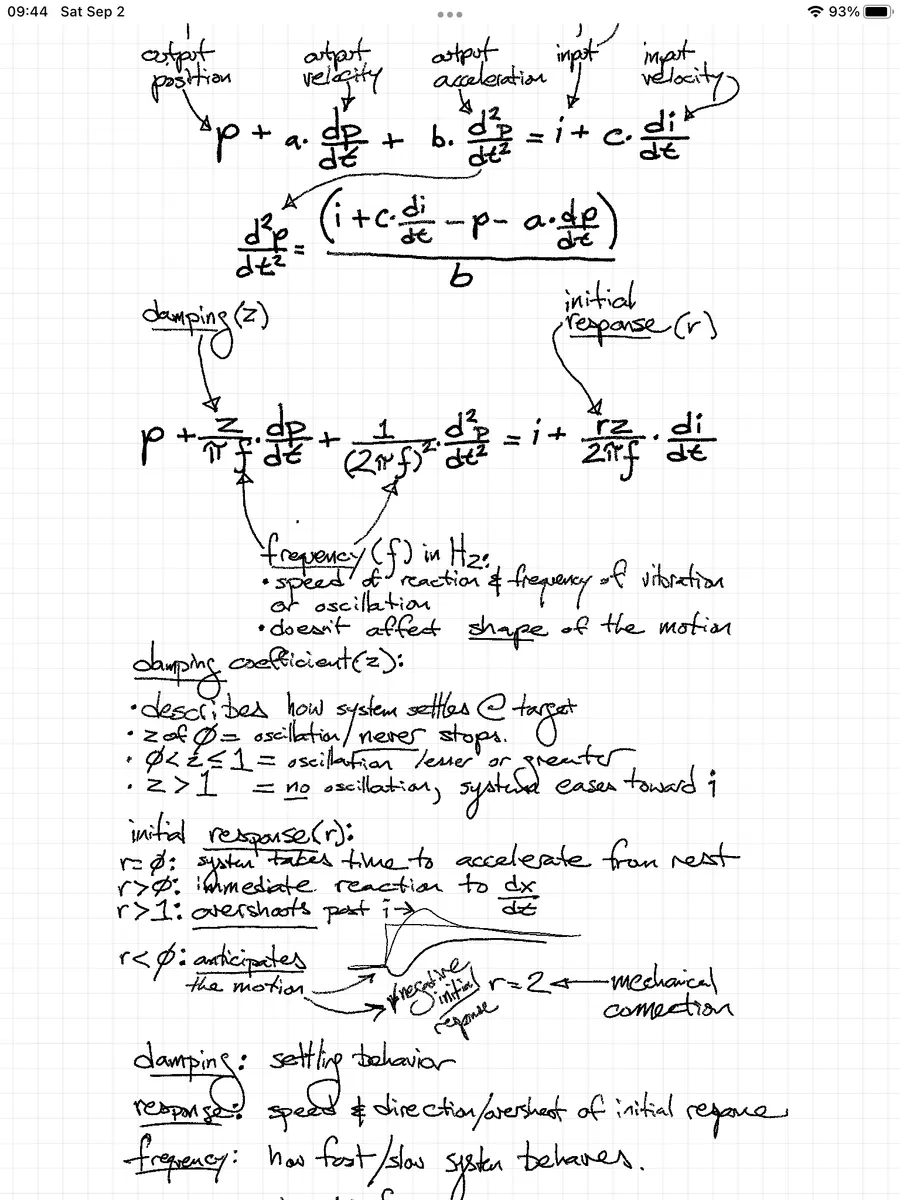 09:44 Sat Sep 2 93%
output position output velocity output acceleration input input velocity
p + a · dp/dt + b · d²p/dt² = i + c · di/dt
d²p/dt² = (i + c · di/dt - p - a · dp/dt) / b
damping (z) initial response (r)
p + z/πf · dp/dt + 1/(2πf)² · d²p/dt² = i + rz/2πf · di/dt
frequency (f) in Hz:
• speed of reaction & frequency of vibration
or oscillation
• doesn't affect shape of the motion
damping coefficient (z):
• describes how system settles @ target
• z of Ø = oscillation/never stops.
• Ø < z ≤ 1 = oscillation lesser or greater
• z > 1 = no oscillation, system eases toward i
initial response (r):
r = Ø: system takes time to accelerate from rest
r > Ø: immediate reaction to dx/dt
r > 1: overshoots past i →
r < Ø: anticipates
the motion
negative initial response
r = 2 ← mechanical
connection
damping: settling behavior
response: speed & direction/overshoot of initial response
frequency: how fast/slow system behaves.